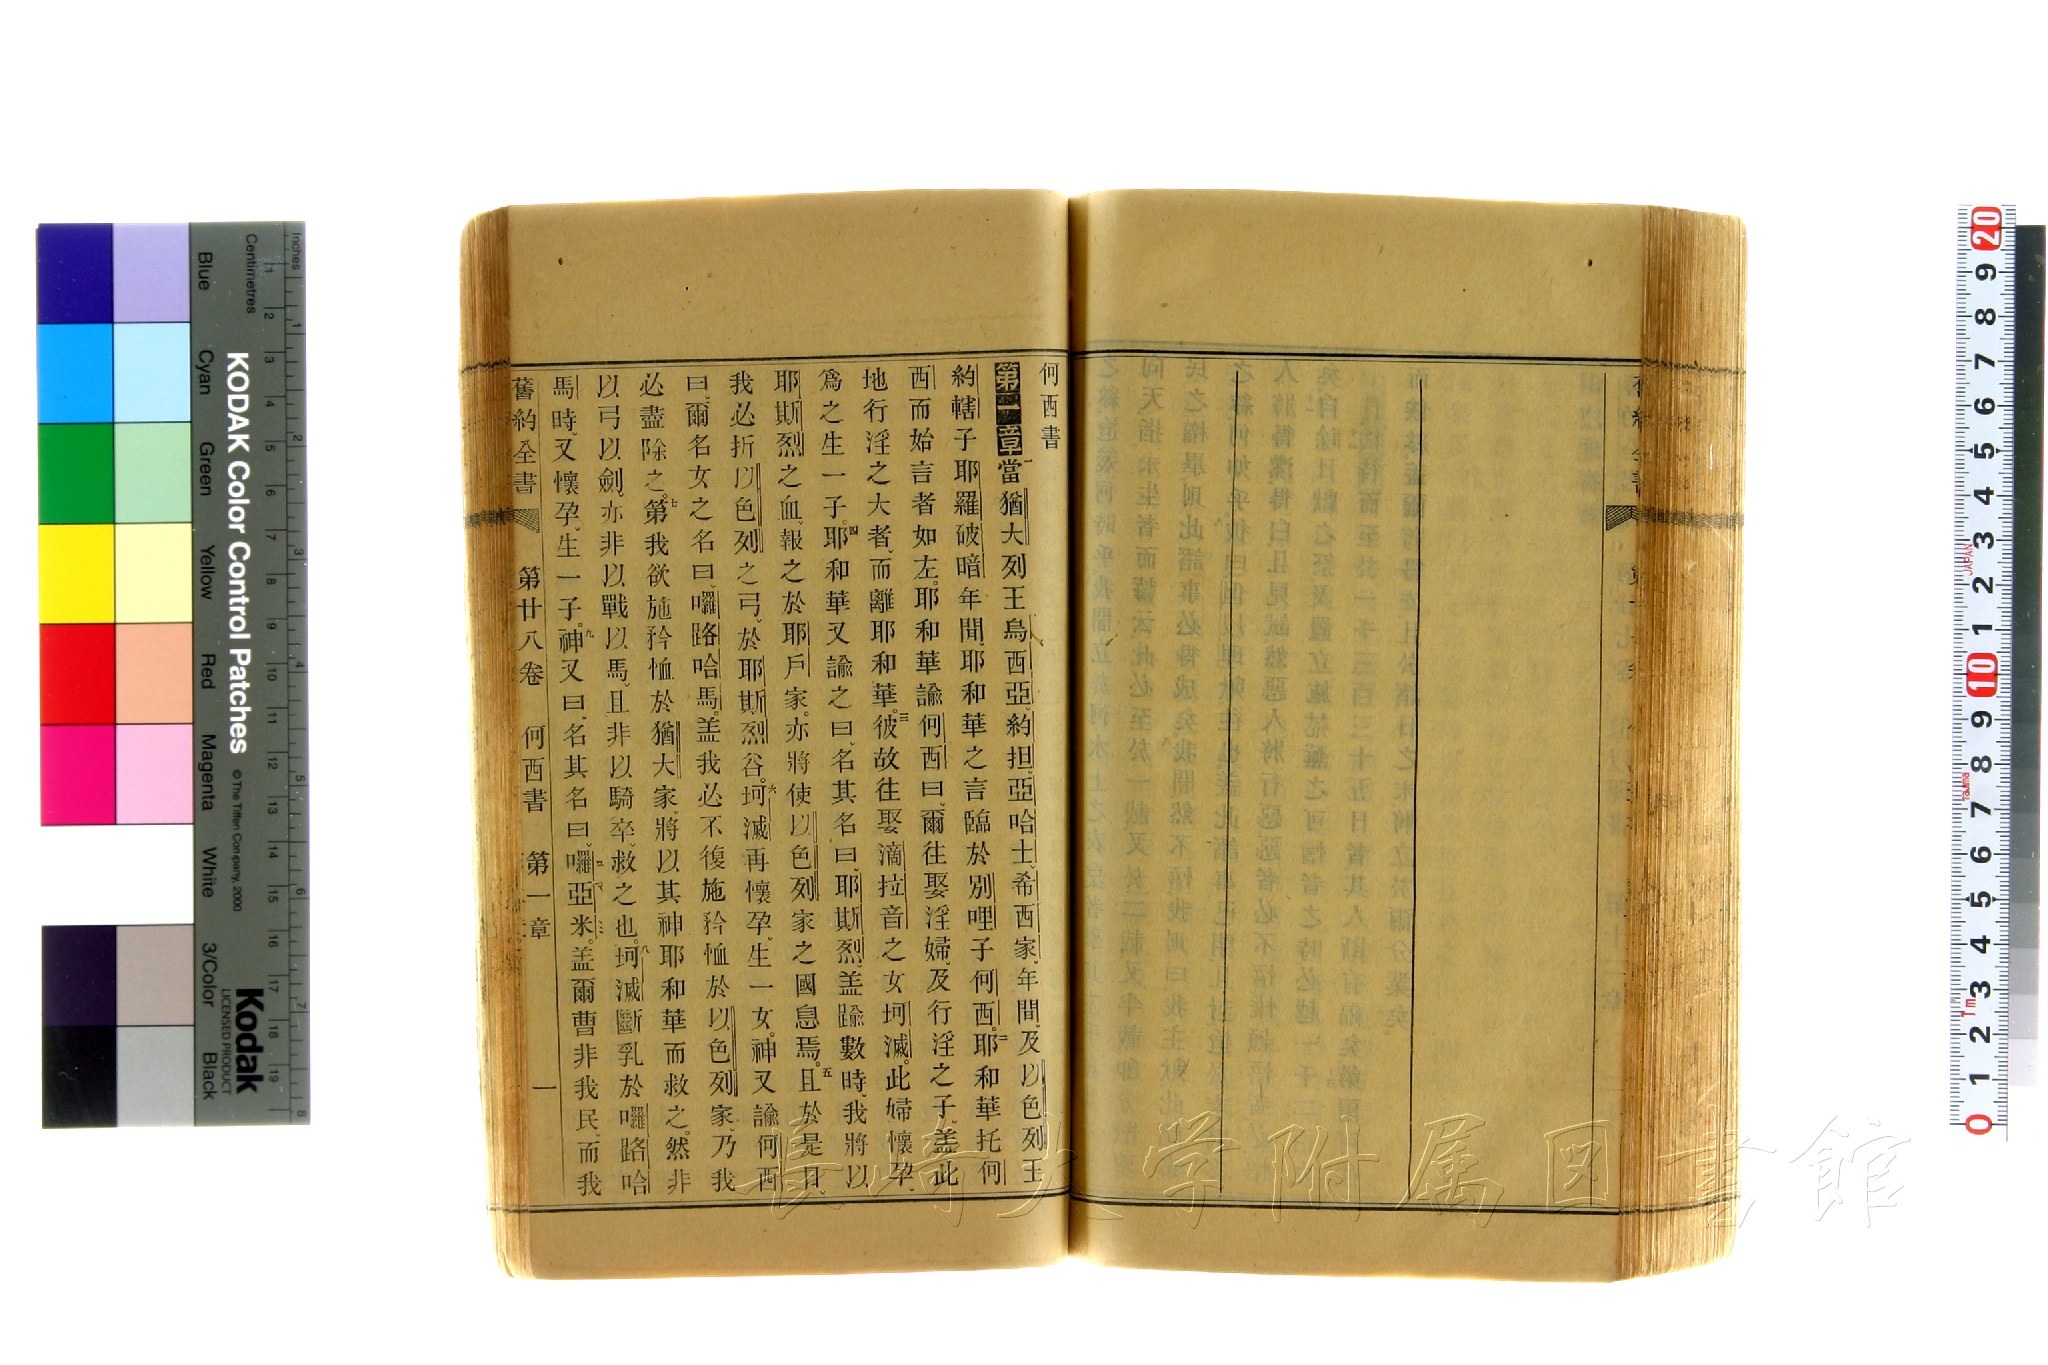 何西書
第一章當猶大列王烏西亞、約担、亞哈士、希西家、年間、及以色列王
約轄子耶羅破暗年間、耶和華之言臨於別哩子何西。耶和華托何
西而始言者如左。耶和華諭何西曰、爾往娶淫婦、及行淫之子、盖此
地行淫之大者、而離耶和華。彼故往娶滴拉音之女坷滅。此婦懷孕、
爲之生一子。耶和華又諭之曰、名其名曰、耶斯烈、盖踰數時、我將以
耶斯烈之血、報之於耶戶家、亦將使以色列家之國息焉。且於是日、
我必折以色列之弓、於耶斯烈谷。坷滅再懷孕、生一女。神又諭何西
曰、爾名女之名曰、囉路哈馬。盖我必不復施矜恤於以色列家、乃我
必盡除之。第我欲施矜恤於猶大家、將以其神耶和華而救之。然非
以弓、以劍、亦非以戰以馬、且非以騎卒、救之也。坷滅斷乳於囉路哈
馬時、又懷孕、生一子。神又曰、名其名曰、囉亞米。盖爾曹非我民、而我
舊約全書 第廿八卷 何西書 第一章 一
KODAK Color Control Patches
© The Tiffen Company, 2000
Kodak
LICENSED PRODUCT
Inches
Centimetres
Blue Cyan Green Yellow Red Magenta White 3/Color Black
1 2 3 4 5 6 7 8 9 10 11 12 13 14 15 16 17 18 19
1 2 3 4 5 6 7 8
20 9 8 7 6 5 4 3 2 1 10 9 8 7 6 5 4 3 2 1 0
JAPAN
Tajima
1m
長崎大学附属図書館